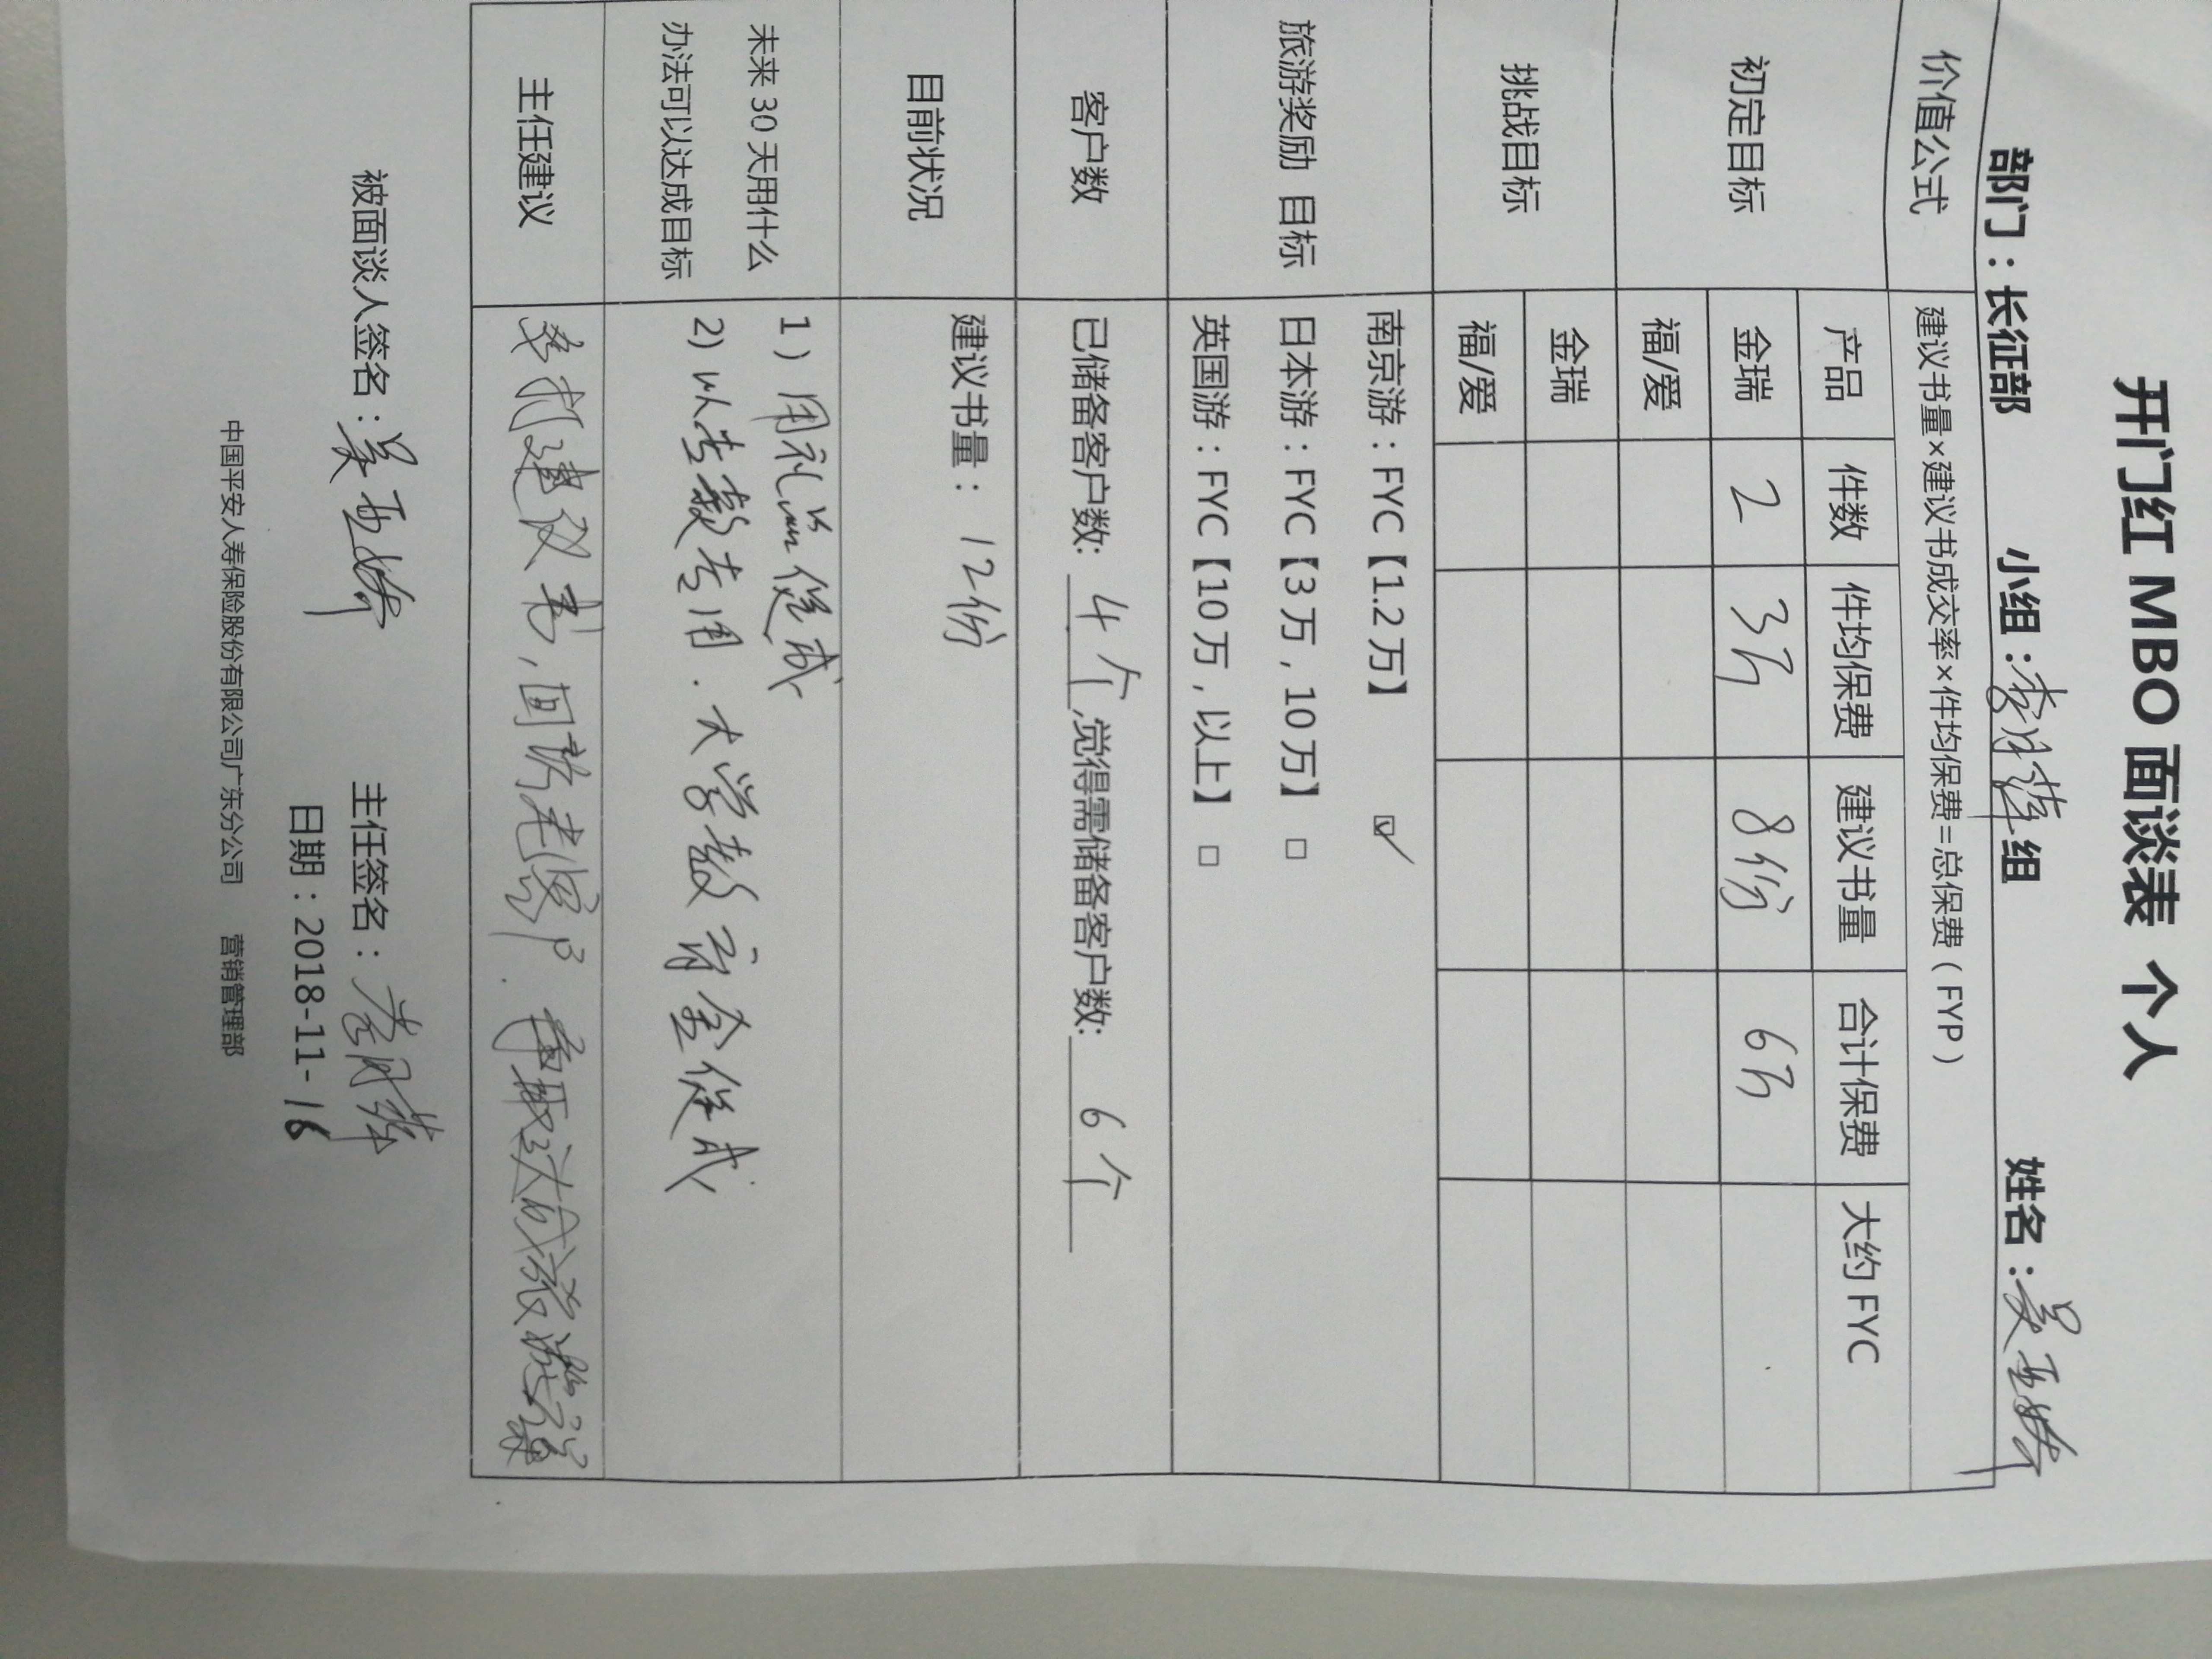 开门红 MBO 面谈表 个人
部门：长征部 小组：李月萍组 姓名：吴亚娇
价值公式 建议书量×建议书成交率×件均保费=总保费（FYP）
初定目标 产品 件数 件均保费 建议书量 合计保费 大约 FYC
金瑞 2 3万 8份 6万
福/爱
挑战目标 金瑞
福/爱
旅游奖励 目标
南京游：FYC【1.2 万】 ☑
日本游：FYC【3 万，10 万】 □
英国游：FYC【10 万，以上】 □
客户数 已储备客户数: 4个,觉得需储备客户数: 6个
目前状况 建议书量： 12份
未来 30 天用什么
办法可以达成目标
1）用礼品促成
2)以专款专用．大学教育金促成
主任建议 建议书，回访老客户．争取达成旅游
被面谈人签名：吴亚娇 主任签名：
日期：2018-11-16
中国平安人寿保险股份有限公司广东分公司 营销管理部